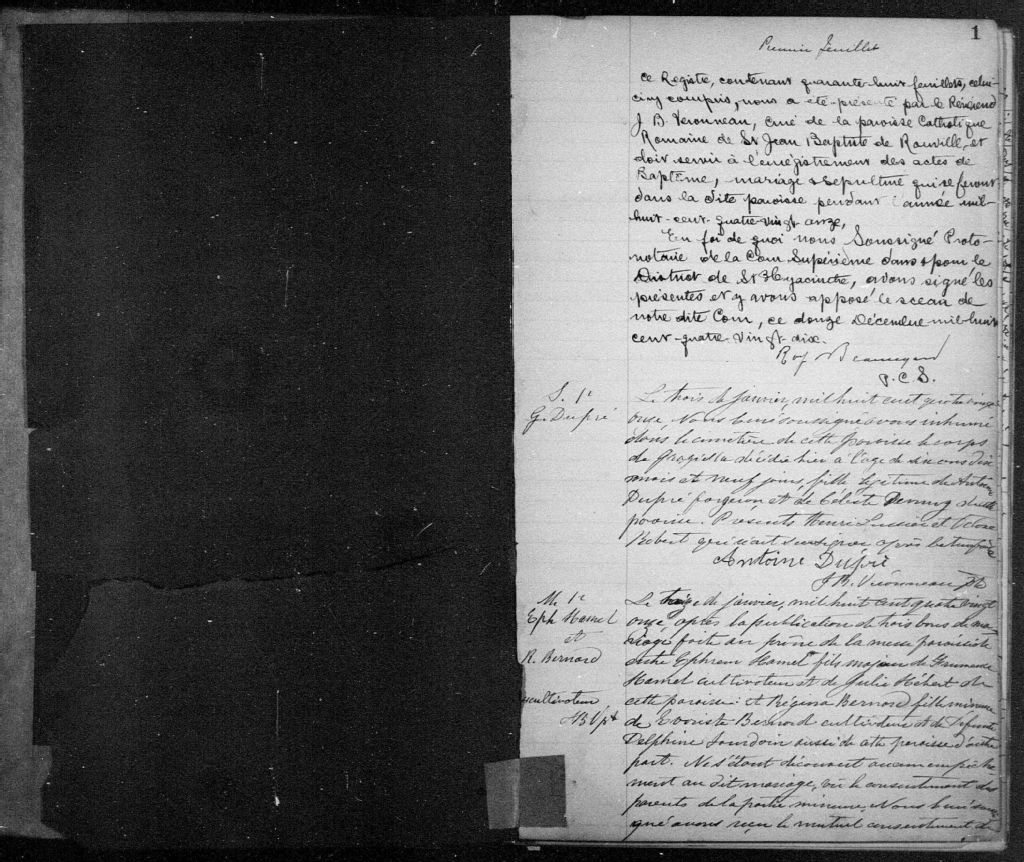 1
Premier feuillet
Ce Registre, contenant quarante-huit feuillets, celui-
ci y compris, nous a été présenté par le Révérend
J. B. Véronneau, curé de la paroisse Catholique
Romaine de St Jean Baptiste de Rouville, et
doit servir à l'enrégistrement des actes de
Baptême, mariage & sepulture qui se feront
dans la dite paroisse pendant l'année mil-
huit-cent-quatre-vingt-onze,
En foi de quoi nous Soussigné Proto-
notaire de la Cour Supérieure dans & pour le
District de St Hyacinthe, avons signé les
présentes et y avons apposé le sceau de
notre dite Cour, ce douze Décembre mil-huit
cent-quatre-vingt-dix.
Roy & Beauregard
P. C. S.
S. 1e
G. Dupré
Le trois de janvier, mil huit cent quatre vingt
onze, Nous curé soussigné avons inhumé
dans le cimetière de cette paroisse le corps
de décédée hier à l'age de six ans dix
mois et neuf jours, fille légitime de Antoine
Dupré forgeron et de Céleste de cette
paroisse. Présents Henri Lussier et
Robert qui n'ont su signer après lecture faite
Antoine Dupré
J. B. Véronneau Ptre
M. 1e
Eph Hamel
et
R. Bernard
cultivateur
JBV pt
Le de janvier, mil huit cent quatre vingt
onze, après la publication de trois bans de ma
riage faite au prône de la messe paroissiale
entre Ephrem Hamel fils majeur de
Hamel cultivateur et de Julie Hébert de
cette paroisse: et Régina Bernard fille mineure
de Evariste Bernard cultivateur et de défunte
Delphine Jourdain aussi de cette paroisse d'autre
part. Ne s'étant découvert aucun empêche
ment au dit mariage, vu le consentement des
parents de la partie mineure, Nous curé sous
signé avons reçu le mutuel consentement de